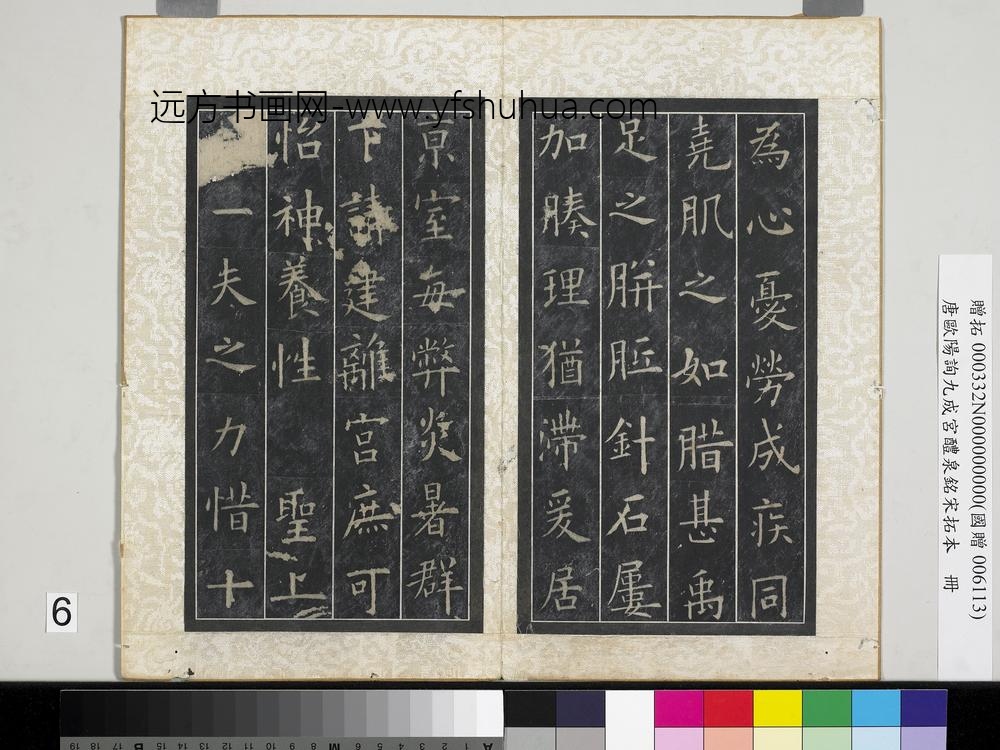 远方书画网-www.yfshuhua.com
為心憂勞成疾同
堯肌之如腊甚禹
足之胼胝針石屢
加腠理猶滯爰居
京室每弊炎暑群
下請建離宮庶可
怡神養性聖上
一夫之力惜十
贈拓 000332N000000000(國贈 006113)
唐歐陽詢九成宮醴泉銘宋拓本 冊
6
19 18 17 16 15 14 13 12 11 10 9 8 7 6 5 4 3 2 1
B M A